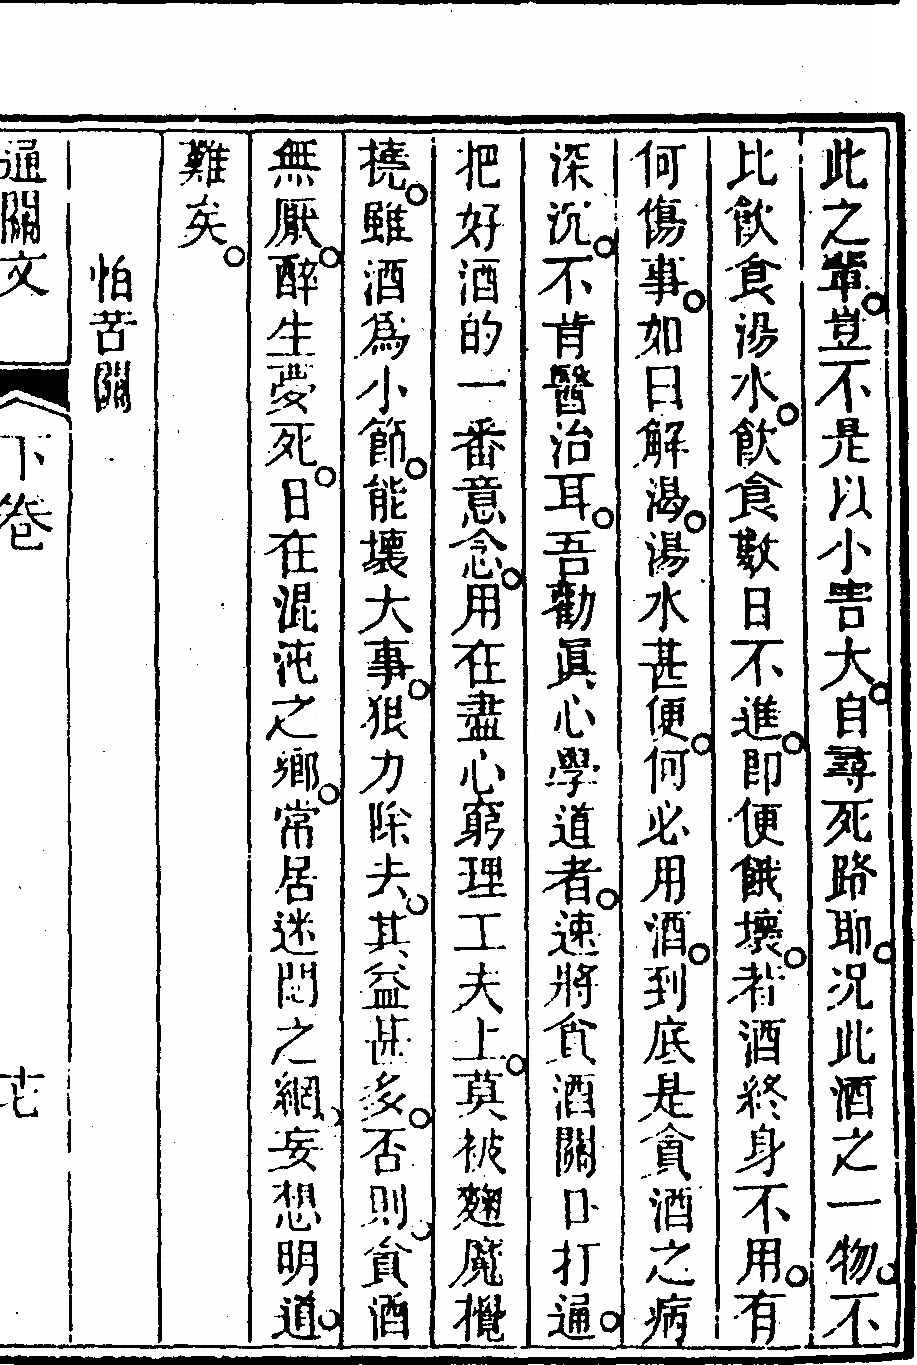 此之輩。豈不是以小害大。自尋死路耶。況此酒之一物。不
比飲食湯水。飲食數日不進。即便餓壞。若酒終身不用。有
何傷事。如曰解渴。湯水甚便。何必用酒。到底是貪酒之病
深沉。不肯醫治耳。吾勸眞心學道者。速將貪酒關口打通。
把好酒的一番意念。用在盡心窮理工夫上。莫被麴魔攪
撓。雖酒為小節。能壞大事。狠力除去。其益甚多。否則。貪酒
無厭。醉生夢死。日在混沌之鄉。常居迷悶之網。妄想明道。
難矣。
怕苦關
通關文
下卷